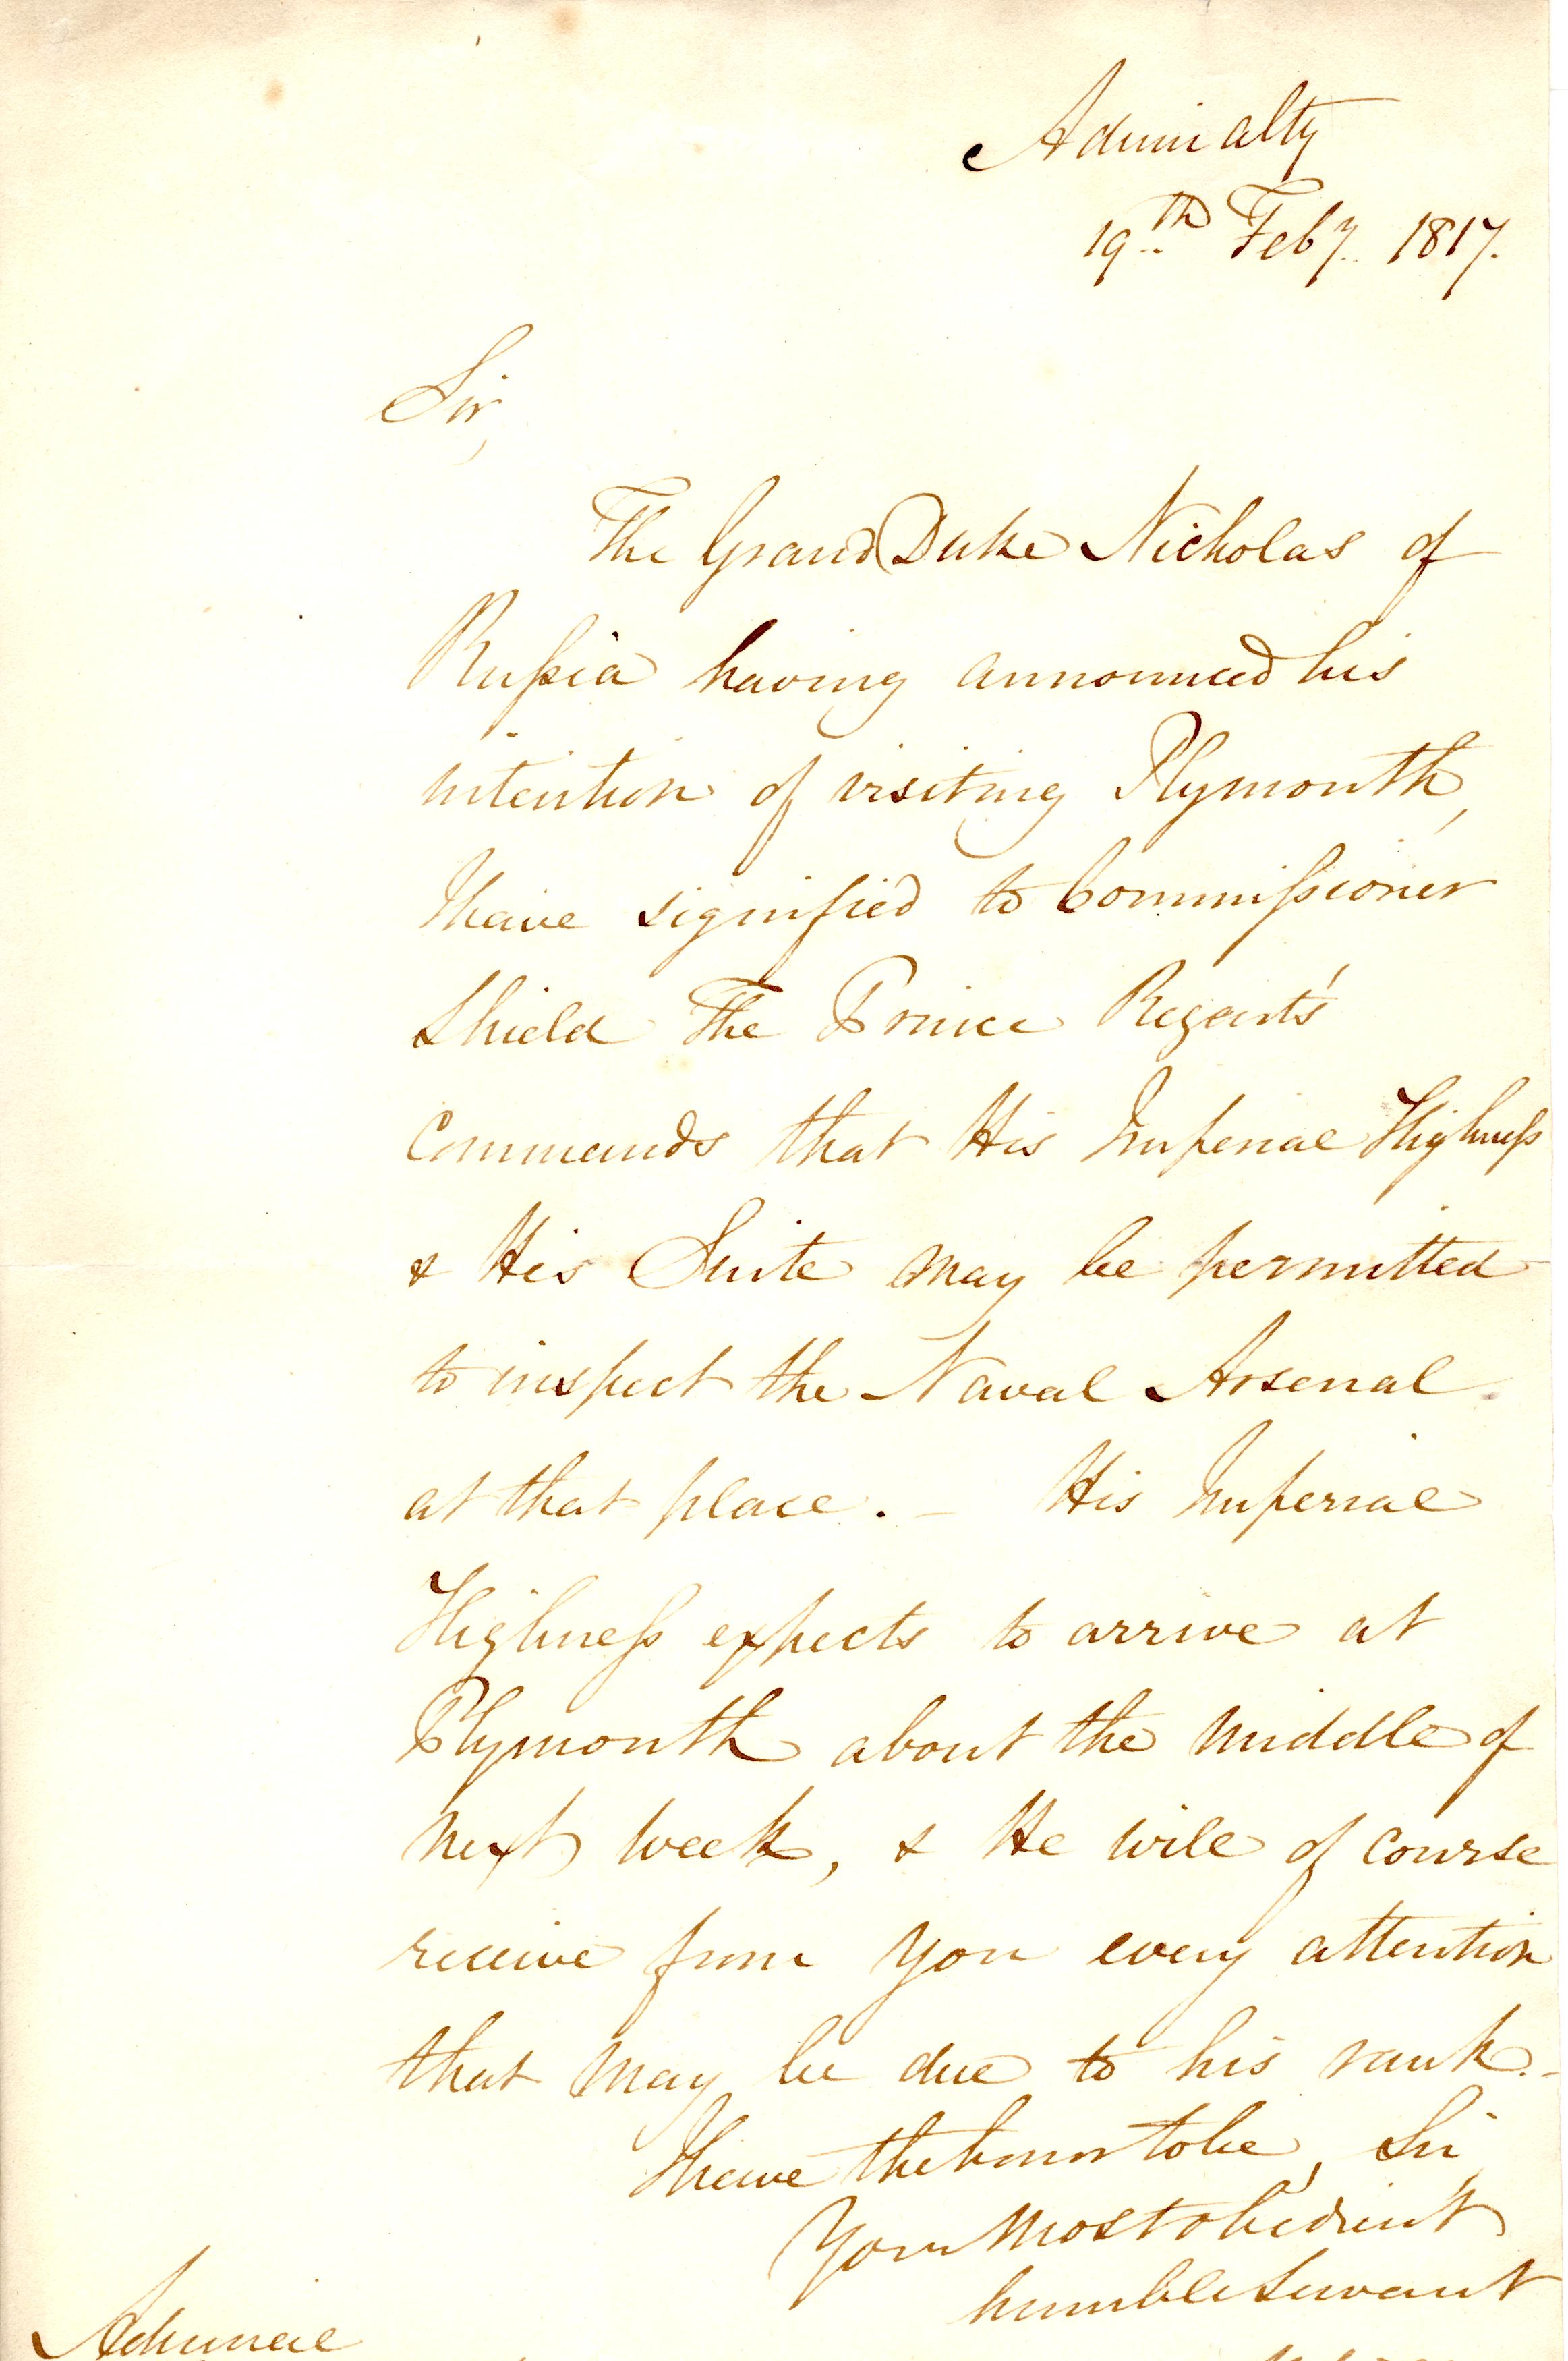 Admiralty
19th Feby. 1817.
Sir,
The Grand Duke Nicholas of
Russia having announced his
intention of visiting Plymouth,
I have signified to Commissioner
Shield The Prince Regent's
Commands that His Imperial Highness
& His Suite may be permitted
to inspect the Naval Arsenal
at that place. — His Imperial
Highness expects to arrive at
Plymouth about the middle of
next week, & He will of course
receive from you every attention
that may be due to his rank. -
I have the honor to be, Sir,
Your most obedient
humble Servant
Admiral